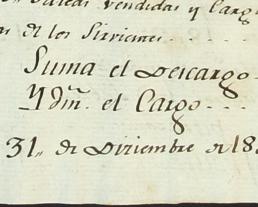 vendidas y Carg
de los Sirvientes
Suma el Descargo
Y dm. el Cargo
31,, de Diziembre de 18